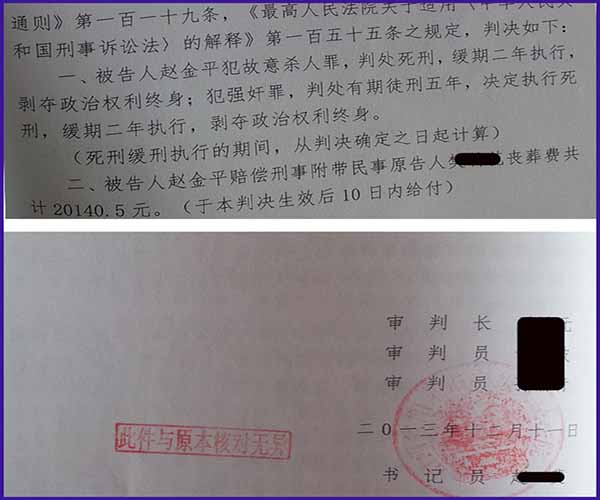 通则》第一百一十九条，《最高人民法院关于适用〈中华人民共
和国刑事诉讼法〉的解释》第一百五十五条之规定，判决如下：
一、被告人赵金平犯故意杀人罪，判处死刑，缓期二年执行，
剥夺政治权利终身；犯强奸罪，判处有期徒刑五年，决定执行死
刑，缓期二年执行，剥夺政治权利终身。
（死刑缓刑执行的期间，从判决确定之日起计算）
二、被告人赵金平赔偿刑事附带民事原告人 丧葬费共
计 20140.5 元。（于本判决生效后 10 日内给付）
审 判 长
审 判 员
审 判 员
二〇一三年十二月十一日
此件与原本核对无异
书 记 员